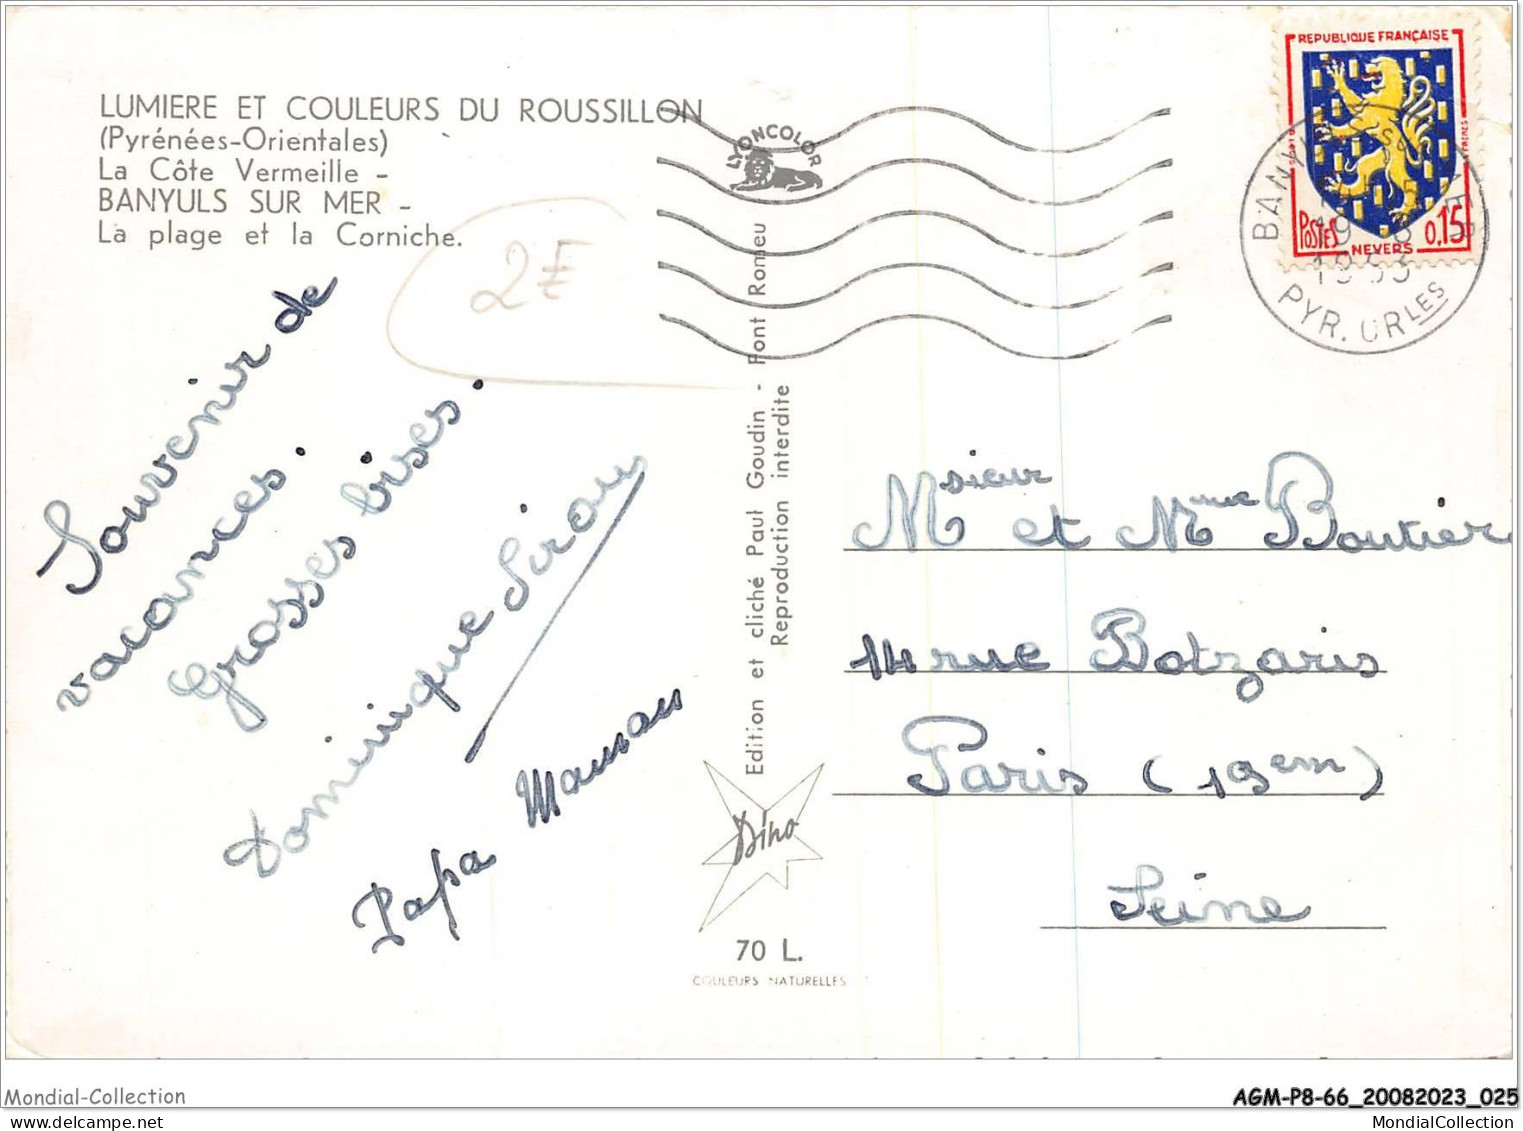 LUMIERE ET COULEURS DU ROUSSILLON
(Pyrénées-Orientales)
La Côte Vermeille -
BANYULS SUR MER -
La plage et la Corniche.
2F
Souvenir de
vacances.
Grosses bises.
Dominique Sirou
Papa Maman
LYONCOLOR
Edition et cliché Paul Goudin - Font Romeu
Reproduction interdite
Dino
70 L.
COULEURS NATURELLES
REPUBLIQUE FRANÇAISE
POSTES
NEVERS
0,15
PYR. ORLES
Msieur et Mme Boutier
14 rue Botzaris
Paris (19em)
Seine
Mondial-Collection
AGM-P8-66_20082023_025
MondialCollection